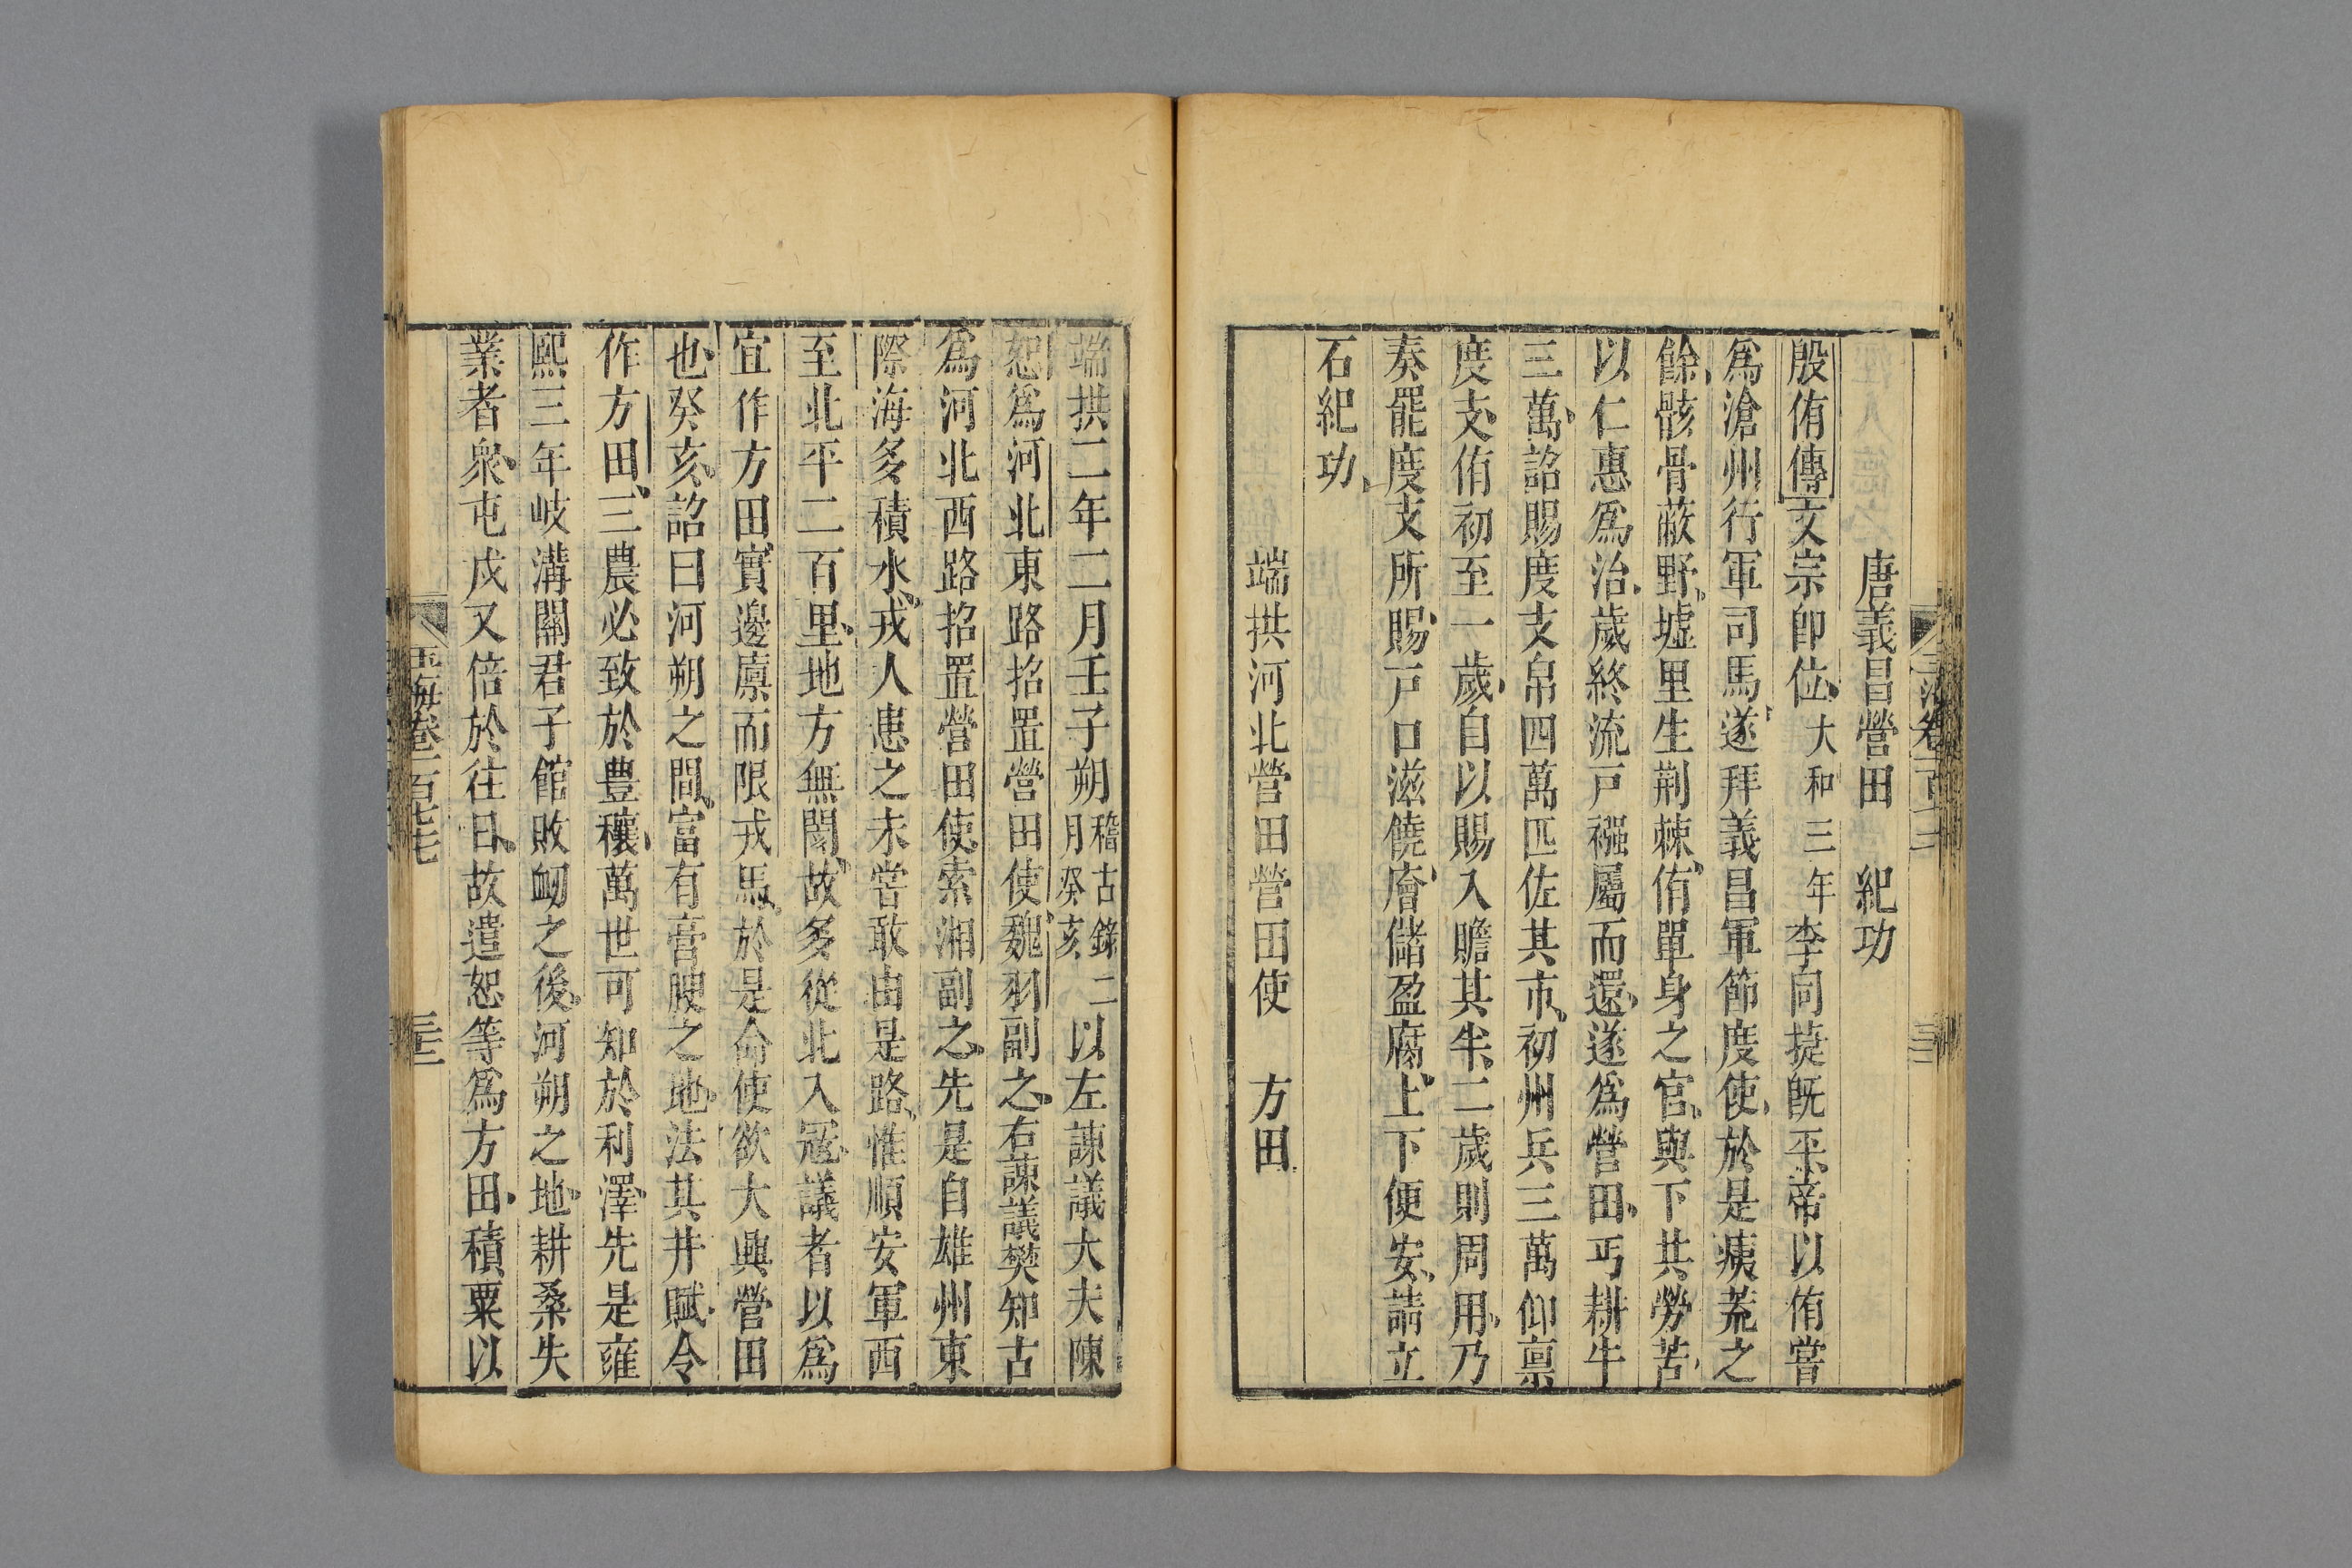 唐義昌營田　紀功
殷侑傳文宗卽位大和三年李同㨗旣平帝以侑嘗
爲滄州行軍司馬遂拜義昌軍節度使於是痍荒之
餘骸骨蔽野墟里生荆棘侑單身之官與下共勞苦
以仁惠爲治歲終流戸襁屬而還遂爲營田丐耕牛
三萬詔賜度支帛四萬匹佐其市初州兵三萬仰禀
度支侑初至一歲自以賜入贍其半二歲則周用乃
奏罷度支所賜戸口滋饒廥儲盈腐上下便安請立
石紀功
端拱河北營田營田使　方田
端拱二年二月壬子朔稽古錄二月癸亥以左諫議大夫陳
恕爲河北東路招置營田使魏羽副之右諫議樊知古
爲河北西路招置營田使索湘副之先是自雄州東
際海多積水戎人患之未嘗敢由是路惟順安軍西
至北平二百里地方無閡故多從北入冦議者以爲
宜作方田實邊廪而限戎馬於是命使欲大興營田
也癸亥詔曰河朔之間富有膏腴之地法其井賦令
作方田三農必致於豊穰萬世可知於利澤先是雍
熙三年岐溝關君子館敗衂之後河朔之地耕桑失
業者衆屯戍又倍於往日故遣恕等爲方田積粟以
玉海卷一百七七